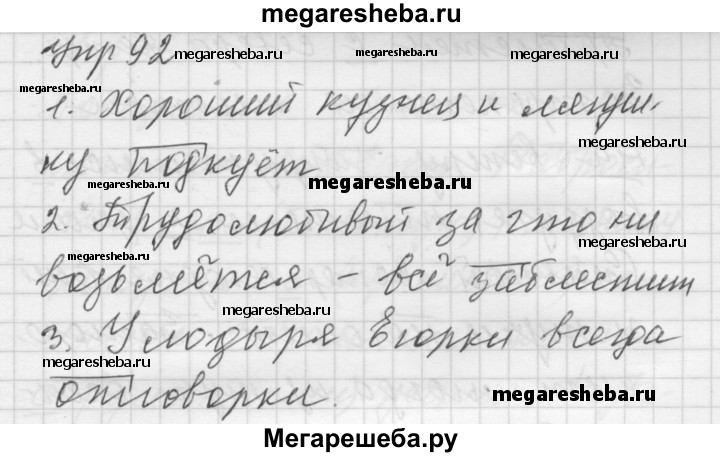 megaresheba.ru
Упр 92 megaresheba.ru megaresheba.ru
megaresheba.ru megaresheba.ru
1. Хороший кузнец и лягуш-
ку подкуёт
megaresheba.ru megaresheba.ru
2. Трудолюбивый за что ни
megaresheba.ru
возьмётся – всё заблестит
megaresheba.ru
3. У лодыря Егорки всегда
megaresheba.ru
отговорки. megaresheba.ru
Мегарешеба.ру